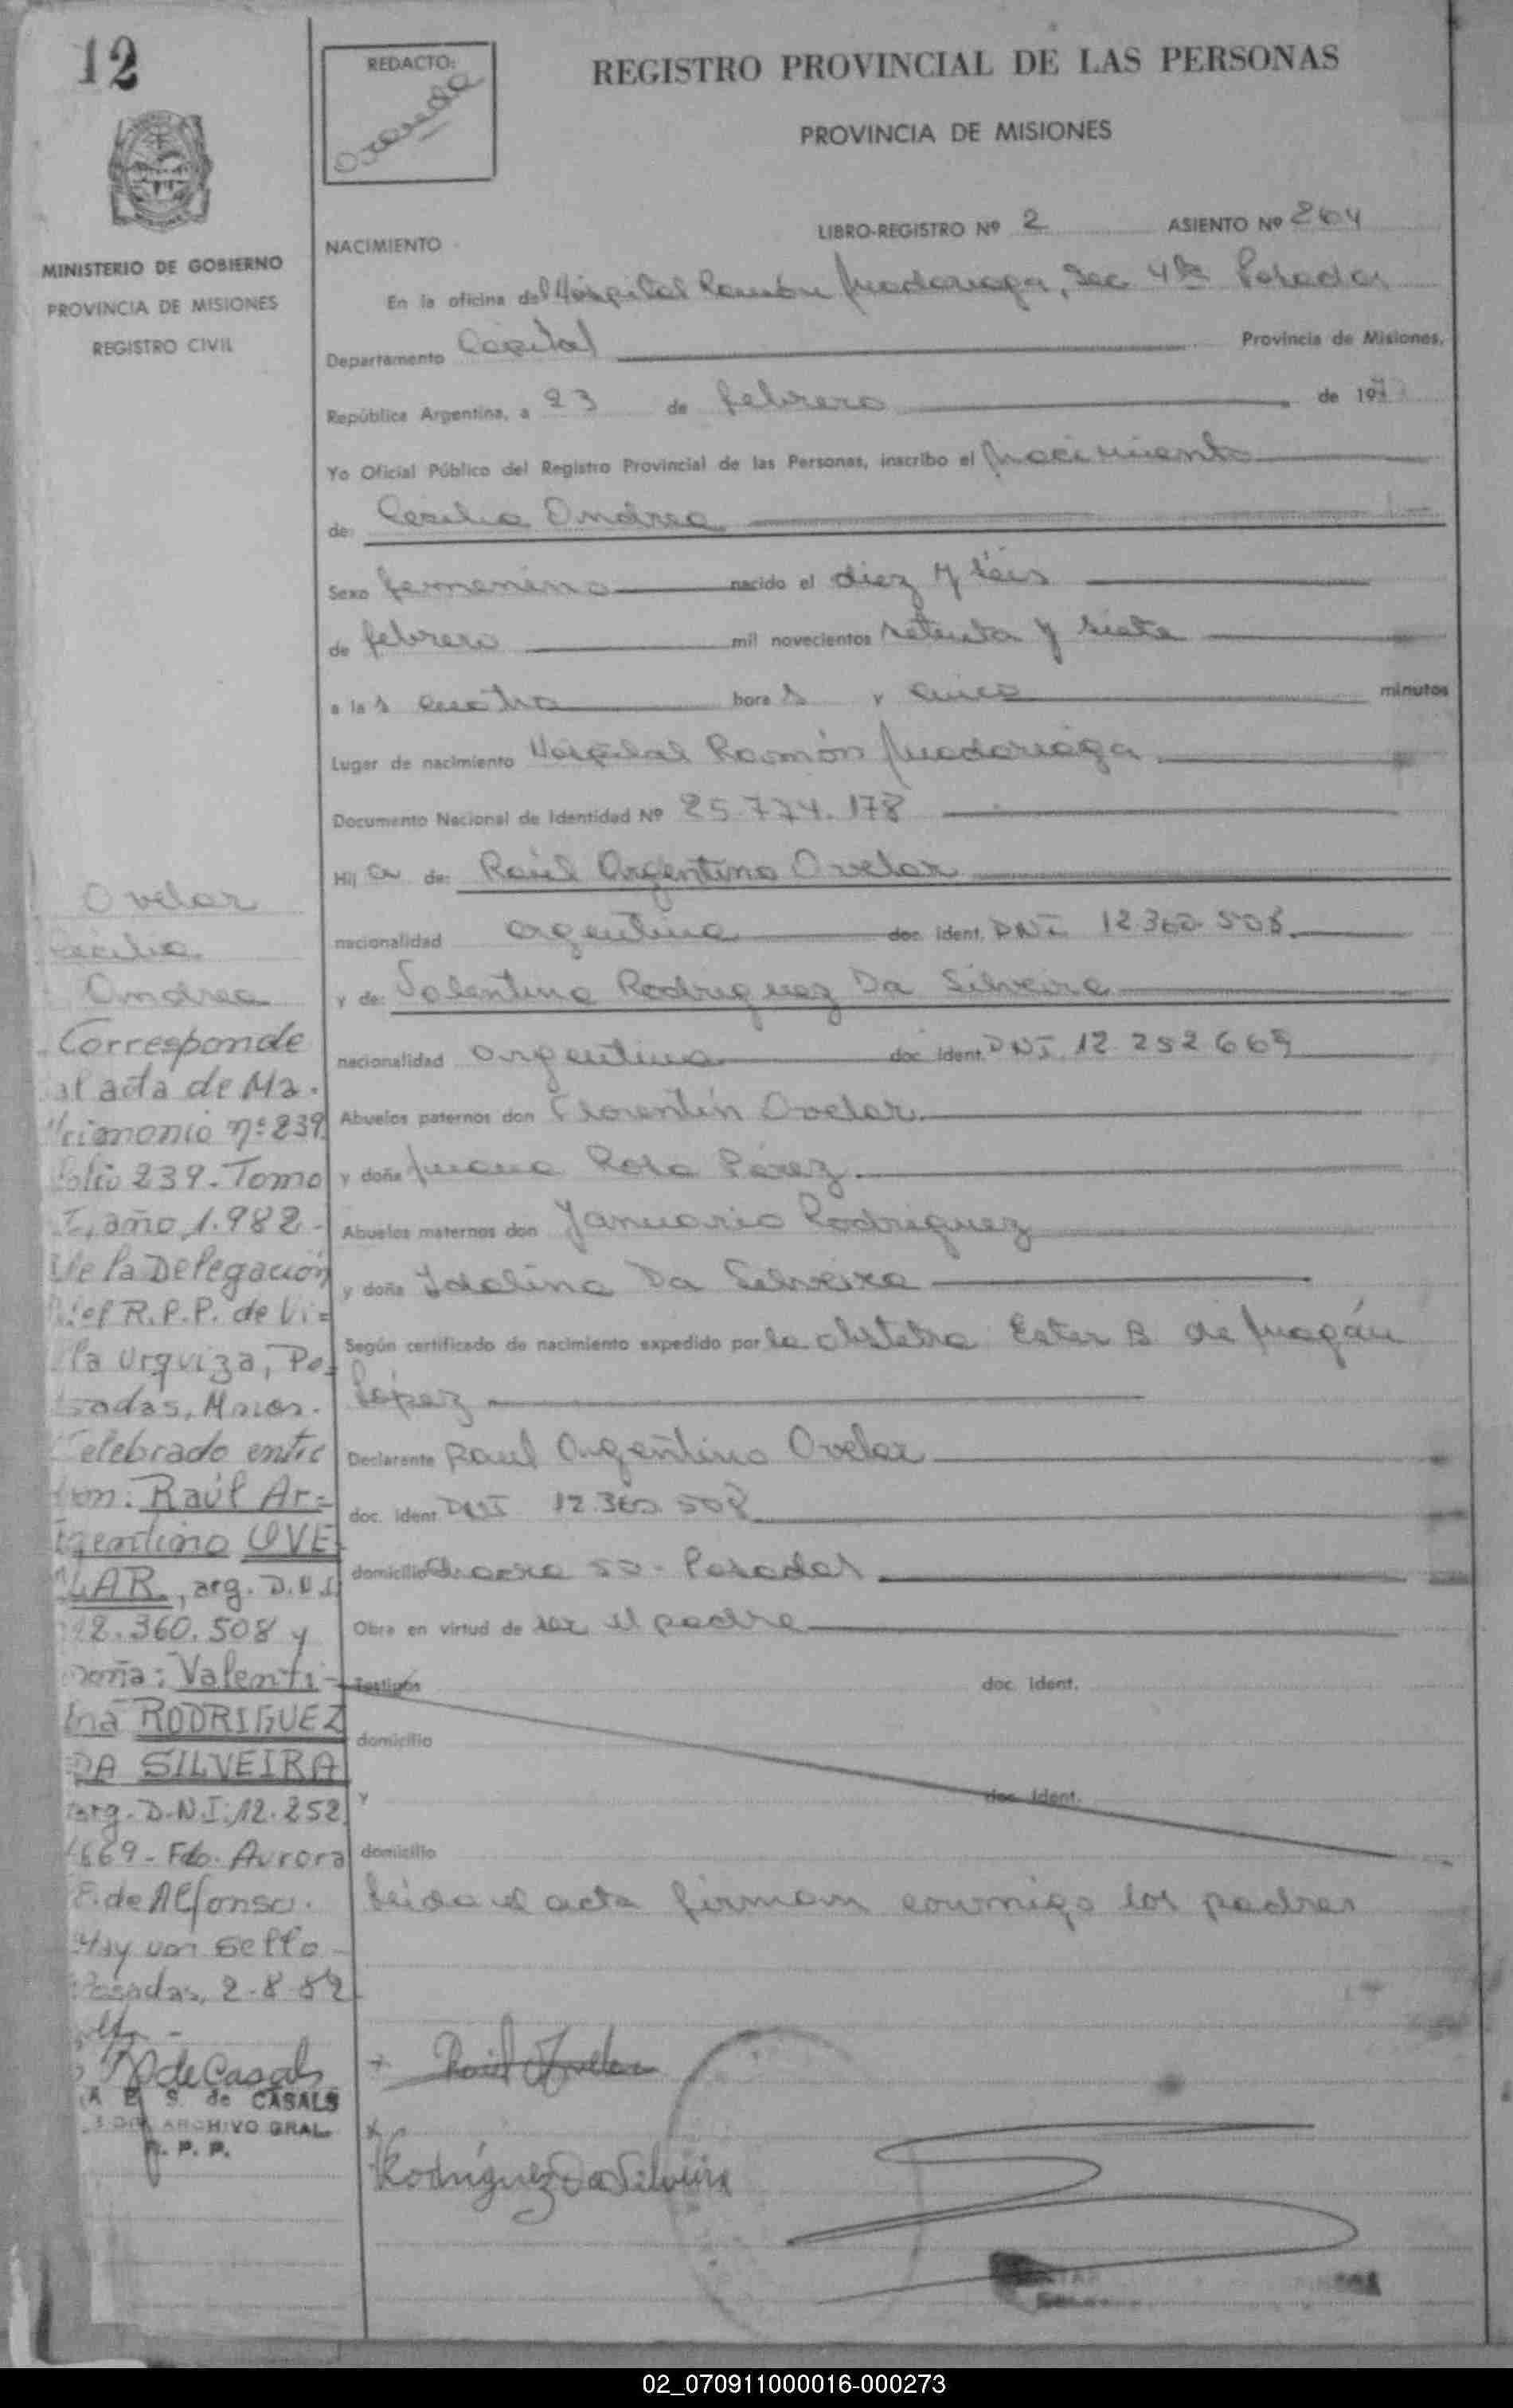 12
REDACTO:
REGISTRO PROVINCIAL DE LAS PERSONAS
PROVINCIA DE MISIONES
LIBRO-REGISTRO Nº 2 ASIENTO Nº 264
NACIMIENTO
MINISTERIO DE GOBIERNO
PROVINCIA DE MISIONES
REGISTRO CIVIL
En la oficina del Hospital Ramón Madariaga, Sec 4ta Posadas
Departamento Capital Provincia de Misiones,
República Argentina, a 23 de febrero de 197
Yo Oficial Público del Registro Provincial de las Personas, inscribo el nacimiento
de: Cecilia Andrea
Sexo femenino nacido el diez y seis
de febrero mil novecientos setenta y siete
a las cuatro horas y cinco minutos
Lugar de nacimiento Hospital Ramón Madariaga
Documento Nacional de Identidad Nº 25.774.178
Hija de: Raúl Argentino Ovelar
nacionalidad argentina doc. ident. DNI 12.360.508
y de: Valentina Rodriguez Da Silveira
nacionalidad argentina doc. ident. DNI 12.252.669
Abuelos paternos don Florentín Ovelar
y doña Juana Rosa Pérez
Abuelos maternos don Januario Rodriguez
y doña Idalina Da Silveira
Según certificado de nacimiento expedido por la obstetra Ester B de Magán
López
Declarante Raul Argentino Ovelar
doc. ident. DNI 12.360.508
domicilio Chacra 50 - Posadas
Obra en virtud de ser el padre
Testigos doc. ident.
domicilio
y doc. ident.
domicilio
Leida el acta firman conmigo los padres
Raúl Ovelar
Rodríguez Da Silveira
Ovelar
Cecilia
Andrea
Corresponde
al acta de Ma-
trimonio nº 239
folio 239. Tomo
I, año 1.982-
de la Delegación
del R.P.P. de Vi=
lla Urquiza, Po=
sadas, Mnes.
Celebrado entre
don: Raúl Ar=
gentino OVE
LAR, arg. D.N.I
12.360.508 y
doña: Valenti-
na RODRIGUEZ
DA SILVEIRA
arg. D.N.I. 12.252.
669- Fdo. Aurora
E. de Alfonso.
Hay un sello-
Posadas, 2-8-82
de Casals
S. de CASALS
ARCHIVO GRAL.
R. P. P.
02_070911000016-000273